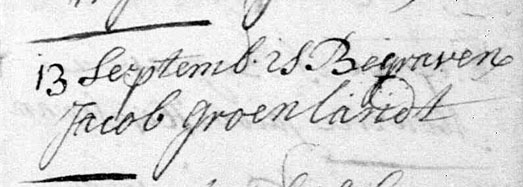 13 Septemb. is Begraven
Jacob groenlandt